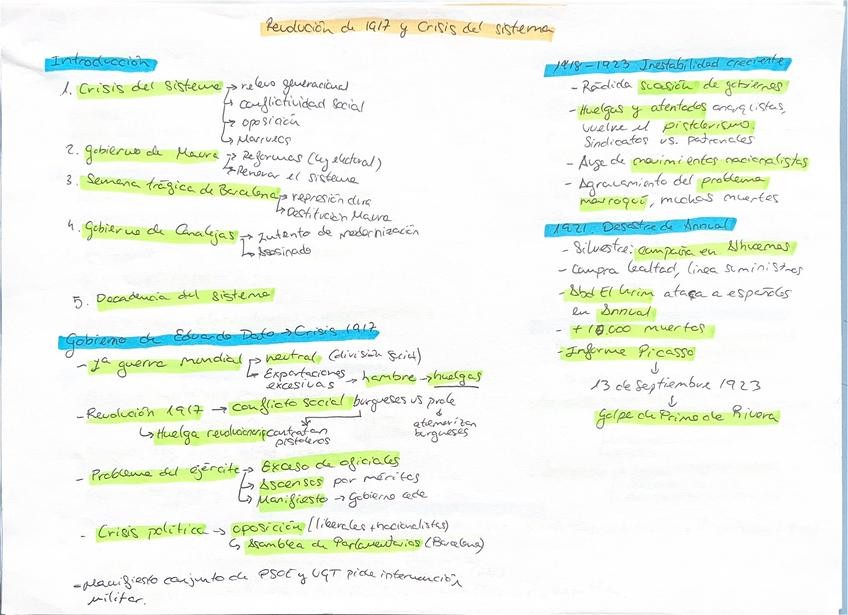 Revolución de 1917 y Crisis del sistema
Introducción
1. Crisis del sistema → relevo generacional
→ conflictividad social
→ oposición
→ Marruecos
2. gobierno de Maura → Reformas (ley electoral)
→ Renovar el sistema
3. Semana trágica de Barcelona → represión dura
→ Destitución Maura
4. Gobierno de Canalejas → Intento de modernización
→ Asesinado
5. Decadencia del sistema
Gobierno de Eduardo Dato → Crisis 1917
- 1ª guerra mundial → neutral (división social)
→ Exportaciones
excesivas → hambre → huelgas
- Revolución 1917 → conflicto social burgueses vs prole
↳ Huelga revolucionaria contratan
pistoleros
atemorizan
burgueses
- Problema del ejército → Exceso de oficiales
→ Ascensos por méritos
→ Manifiesto → Gobierno cede
- Crisis política → oposición (liberales + nacionalistas)
↳ Asamblea de Parlamentarios (Barcelona)
- Manifiesto conjunto de PSOE y UGT pide intervención
militar.
1918-1923 Inestabilidad creciente
- Rápida sucesión de gobiernos
- Huelgas y atentados anarquistas,
vuelve el pistolerismo.
Sindicatos vs. patronales
- Auge de movimientos nacionalistas
- Agravamiento del problema
marroquí, muchas muertes
1921. Desastre de Annual
- Silvestre: campaña en Alhucemas
- Compra lealtad, línea suministros
- Abd El Krim ataca a españoles
en Annual
- + 10.000 muertos
- Informe Picasso
↓
13 de Septiembre 1923
↓
Golpe de Primo de Rivera